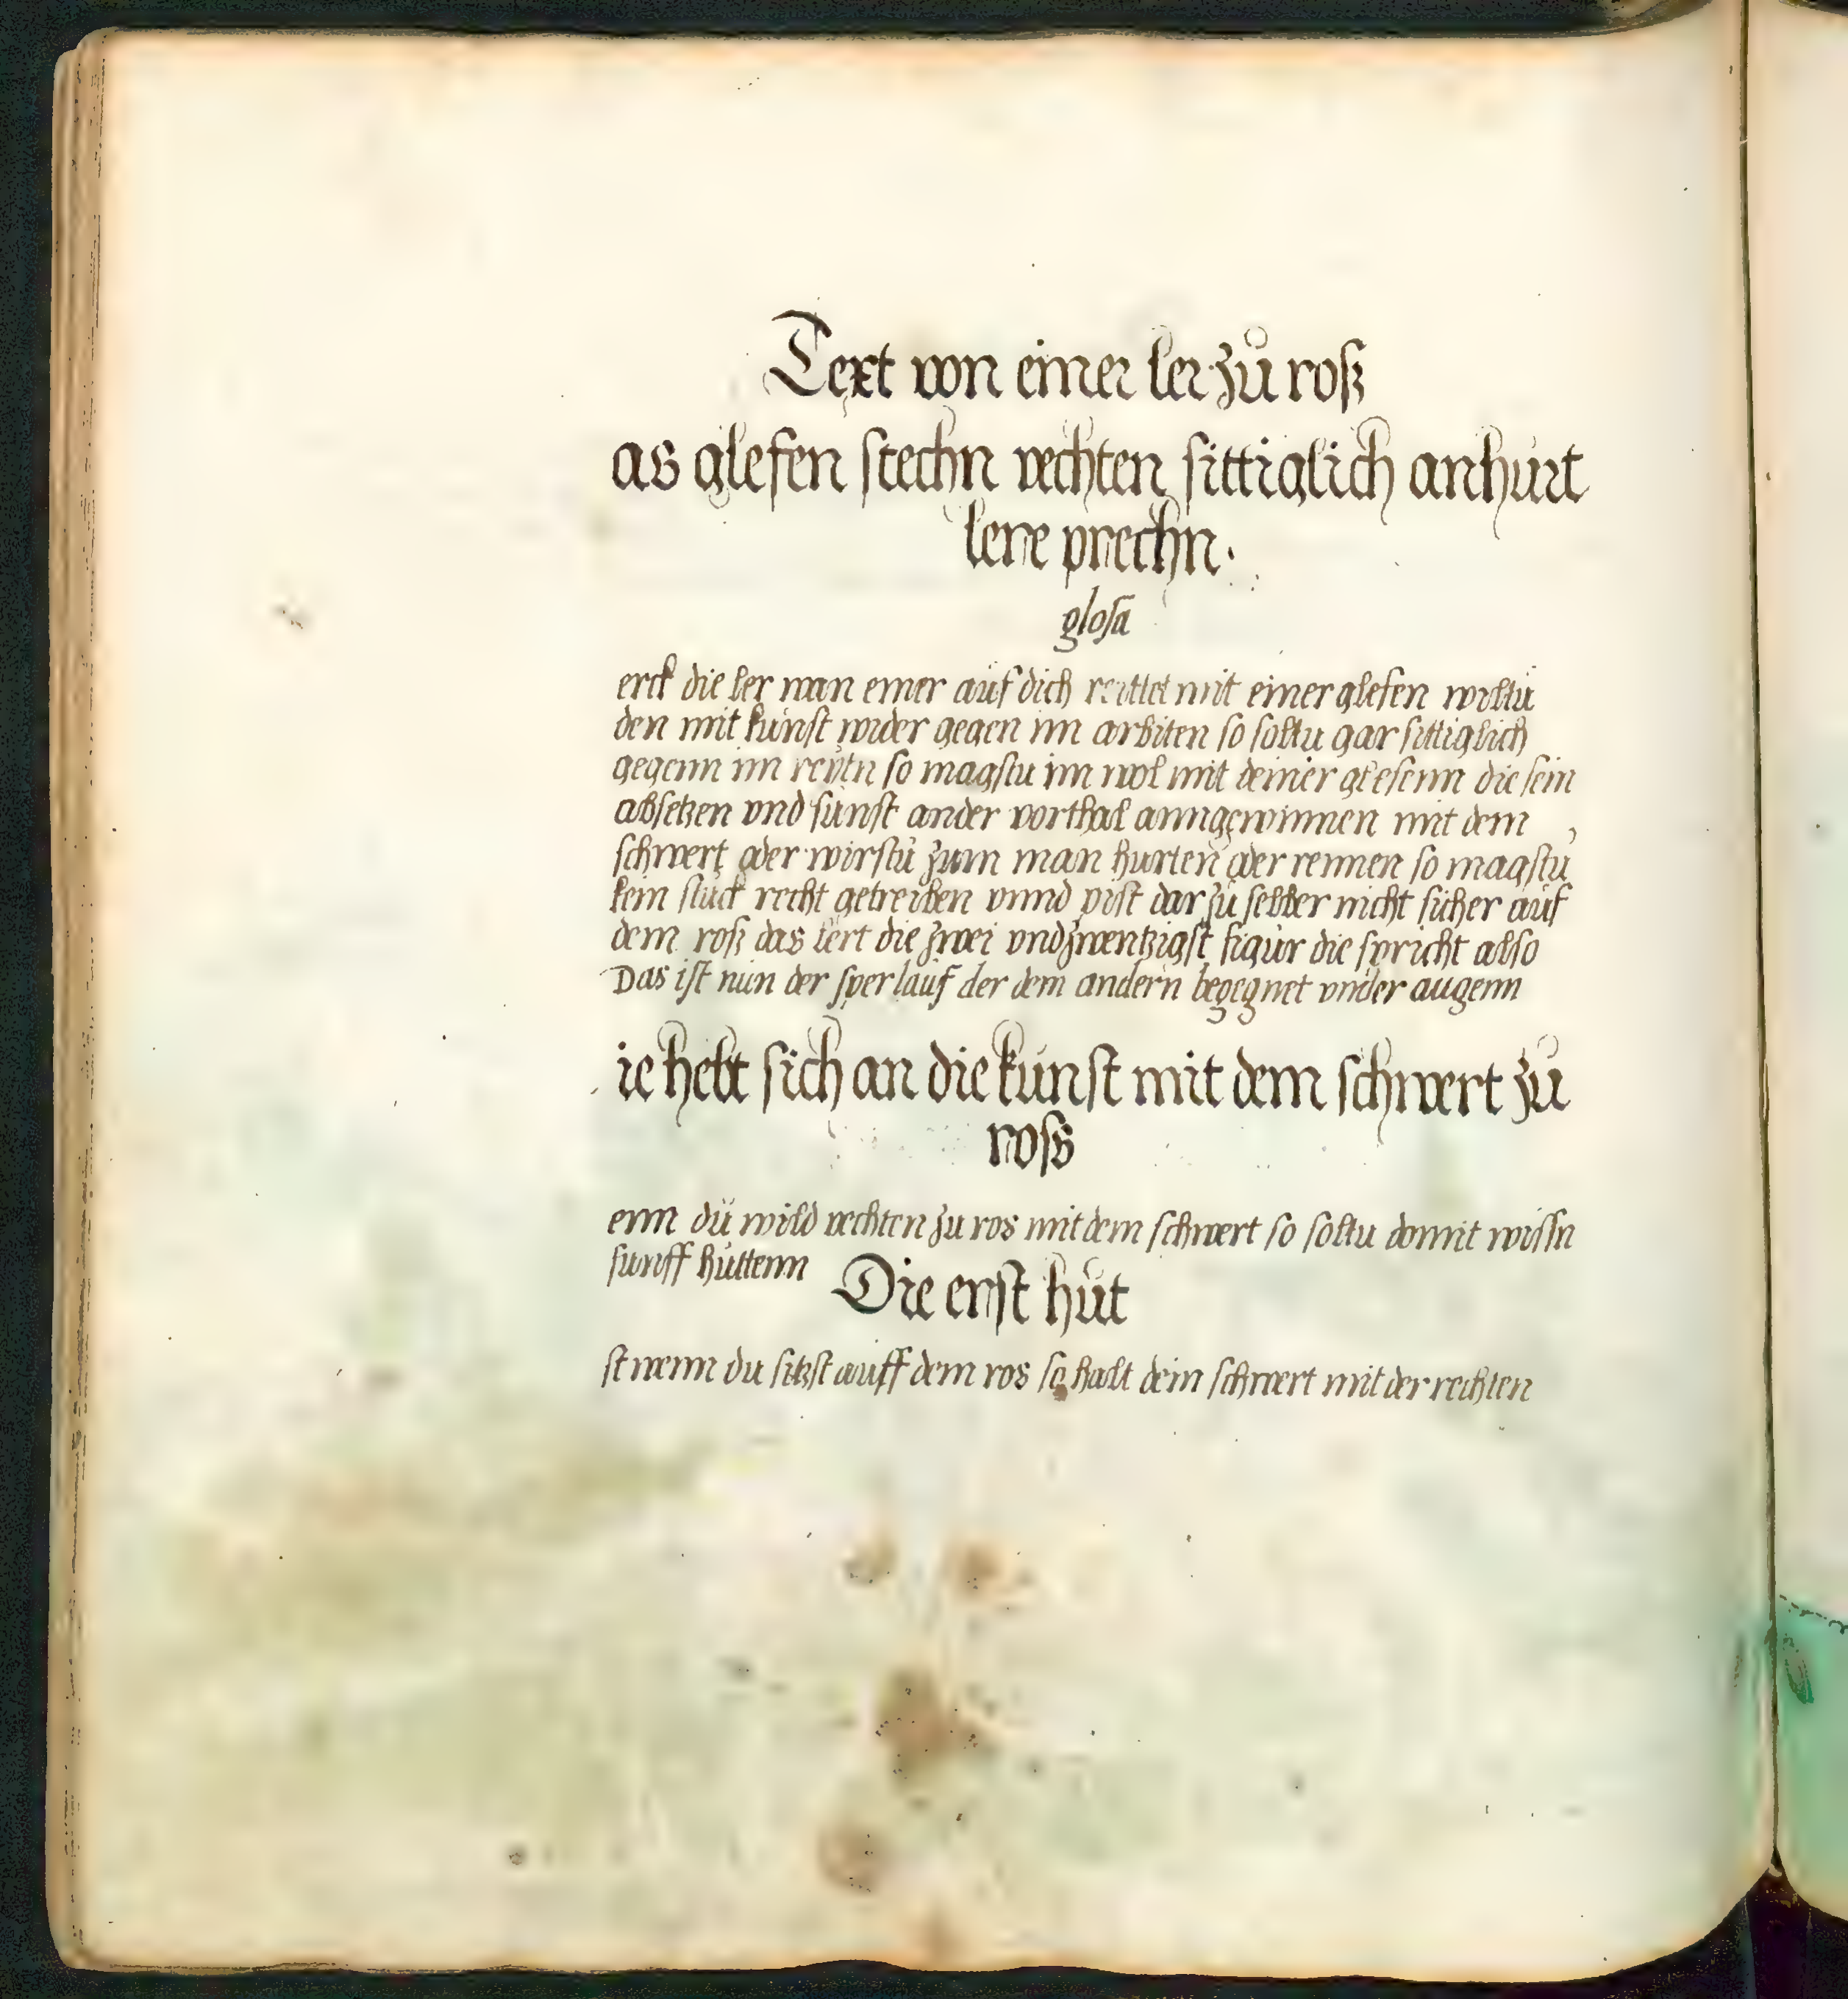 Text von einer ler zů roß
as glefen stechn vechten sittiglich anhurt
lere prechn.
glosa
erck die ler wan einer auf dich reittet mit einer glefen wiltu
den mit kunst wider gegen im arbiten so soltu gar sittiglich
gegenn im reytn so magstu im wol mit deiner glefenn die sein
absetzen vnd sunst ander vorthal anngewinnen mit dem
schwert ader wirstu zum man hurten ader rennen so magstu
kein stuck recht getreiben vnnd pist dar zu selber nicht sicher auf
dem roß das lert die zwei vndzwentzigst figur die spricht also
Das ist nun der sper lauf der dem andern begegnet vnder augenn
ie hebt sich an die kunst mit dem schwert zů
ross
enn du wild vechten zu ros mit dem schwert so soltu domit wissn
funff huttenn
Die erst hut
st wenn du sitzst auff dem ros so halt dein schwert mit der rechten